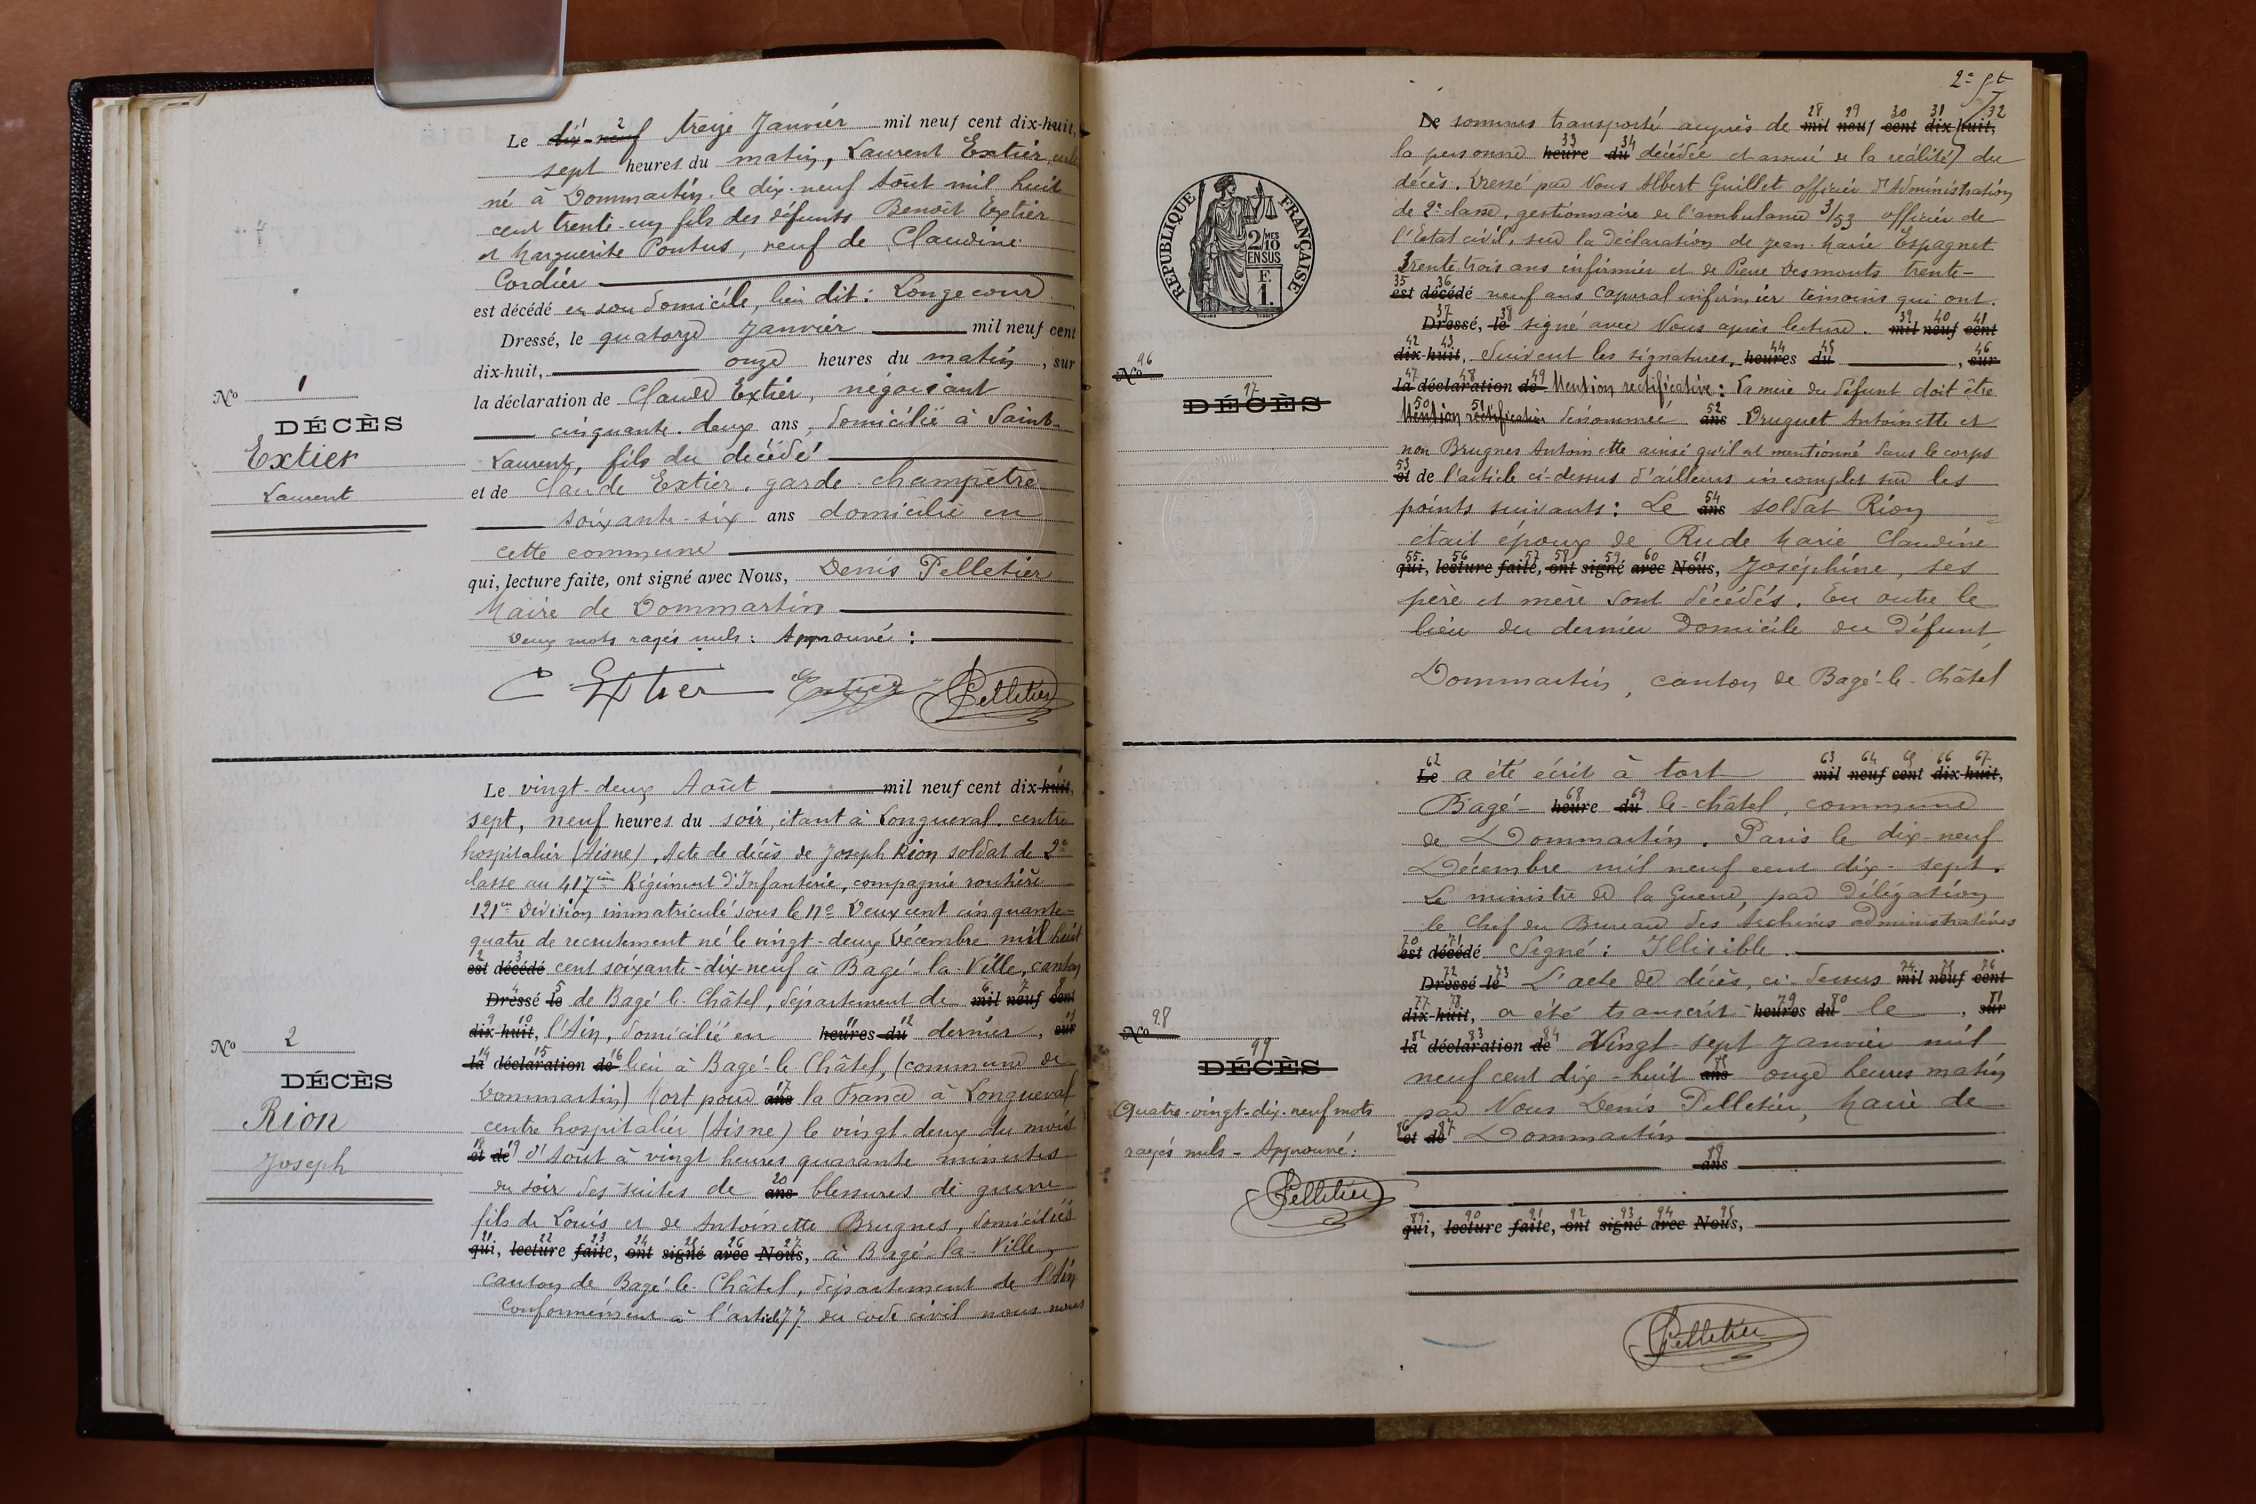 Le dix-neuf treize Janvier mil neuf cent dix-huit,
sept heures du matin, Laurent Extier,
né à Dommartin le dix-neuf Août mil huit
cent trente-un fils des défunts Benoît Extier
et Marguerite Pontus, veuf de Claudine
Cordier
est décédé en son domicile, lieu dit : Longecour
Dressé, le quatorze Janvier mil neuf cent
dix-huit, onze heures du matin, sur
la déclaration de Claude Extier, négociant
cinquante-deux ans, domicilié à Saint-
Laurent, fils du décédé
et de Claude Extier, garde-champêtre
soixante-six ans domicilié en
cette commune
qui, lecture faite, ont signé avec Nous, Denis Pelletier
Maire de Dommartin
Deux mots rayés nuls : Approuvé :
C Extier Extier Pelletier
No 1
DÉCÈS
Extier
Laurent
Le vingt-deux Août mil neuf cent dix-huit,
sept, neuf heures du soir, étant à Longueval, centre
hospitalier (Aisne), Acte de décès de Joseph Rion soldat de 2e
classe au 417ème Régiment d'Infanterie, compagnie routière
121e Division immatriculé sous le No Deux cent cinquante-
quatre de recrutement né le vingt-deux Décembre mil huit
est décédé cent soixante-dix-neuf à Bagé-la-Ville, canton
Dressé le de Bagé-le-Châtel, département de mil neuf cent
dix-huit, l'Ain, domicilié en heures du dernier, sur
la déclaration de lieu à Bagé-le-Châtel, (commune de
Dommartin) Mort pour ans la France à Longueval
centre hospitalier (Aisne) le vingt-deux du mois
et de d'Août à vingt heures quarante minutes
du soir des suites de ans blessures de guerre
fils de Louis et de Antoinette Brugnes, domiciliés
qui, lecture faite, ont signé avec Nous, à Bagé-la-Ville,
canton de Bagé-le-Châtel, département de l'Ain
Conformément à l'article 77 du code civil nous nous
No 2
DÉCÈS
Rion
Joseph
2e
De sommes transporté auprès de mil neuf cent dix huit,
la personne heure du décédée et assuré de la réalité du
décès. Dressé par Nous Albert Guillet officier d'Administration
de 2e classe, gestionnaire de l'ambulance 3/53 officier de
l'Etat civil, sur la déclaration de Jean-Marie Espagnet
trente-trois ans infirmier et de Pierre Desmonts trente-
est décédé neuf ans caporal infirmier témoins qui ont
Dressé, le signé avec Nous après lecture. mil neuf cent
dix-huit, Suivent les signatures. heures du , sur
la déclaration de Mention rectificative : La mère du défunt doit être
Mention rectificative dénommée ans Druguet Antoinette et
non Brugnes Antoinette ainsi qu'il est mentionné dans le corps
et de l'article ci-dessus d'ailleurs incomplet sur les
points suivants : Le ans soldat Rion
était époux de Rude Marie Claudine
qui, lecture faite, ont signé avec Nous, Joséphine, ses
père et mère sont décédés. En outre le
lieu du dernier domicile du défunt,
Dommartin, canton de Bagé-le-Châtel
RÉPUBLIQUE FRANÇAISE
2/10 MES
EN SUS
F.
1.
No 96
DÉCÈS 97
Le a été écrit à tort mil neuf cent dix-huit,
Bagé- heure du le-châtel, commune
de Dommartin. Paris le dix-neuf
Décembre mil neuf cent dix-sept.
Le ministre de la Guerre, par délégation
le Chef du Bureau des Archives administratives
est décédé Signé : Illisible.
Dressé le L'acte de décès, ci-dessus mil neuf cent
dix-huit, a été transcrit heures du le , sur
la déclaration de Vingt-sept Janvier mil
neuf cent dix-huit ans onze heures matin
par Nous Denis Pelletier, Maire de
et de Dommartin
ans
qui, lecture faite, ont signé avec Nous,
Pelletier
No 98
DÉCÈS 99
Quatre-vingt-dix-neuf mots
rayés nuls - Approuvé :
Pelletier